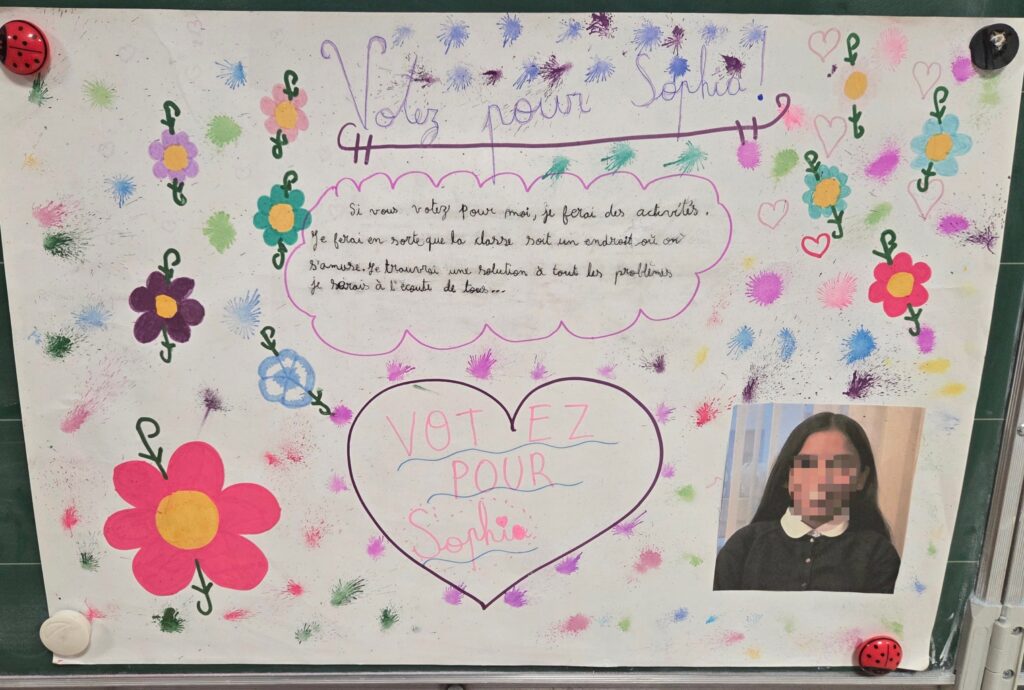 Votez pour Sophia!
Si vous votez pour moi, je ferai des activités.
Je ferai en sorte que la classe soit un endroit où on
s'amuse. Je trouvrai une solution à tout les problèmes
je serais à l'écoute de tous...
VOTEZ
POUR
Sophia